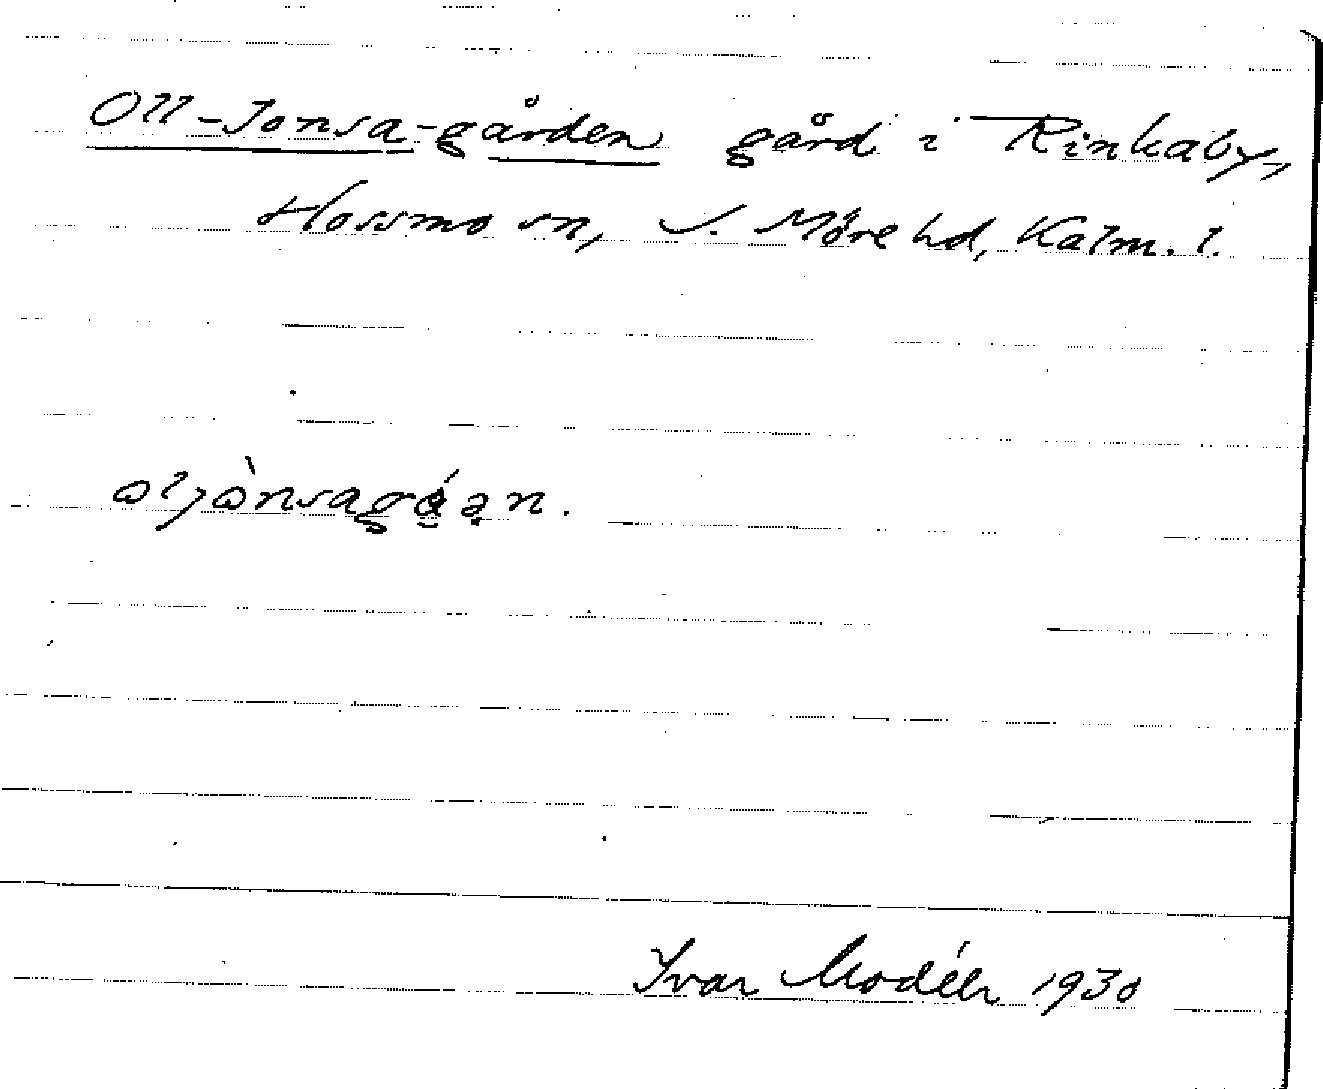 Oll-Jonsa-gården gård i Rinkaby,
Hossmo sn, S. Möre hd, Kalm. l.
Ivar Modéer 1930